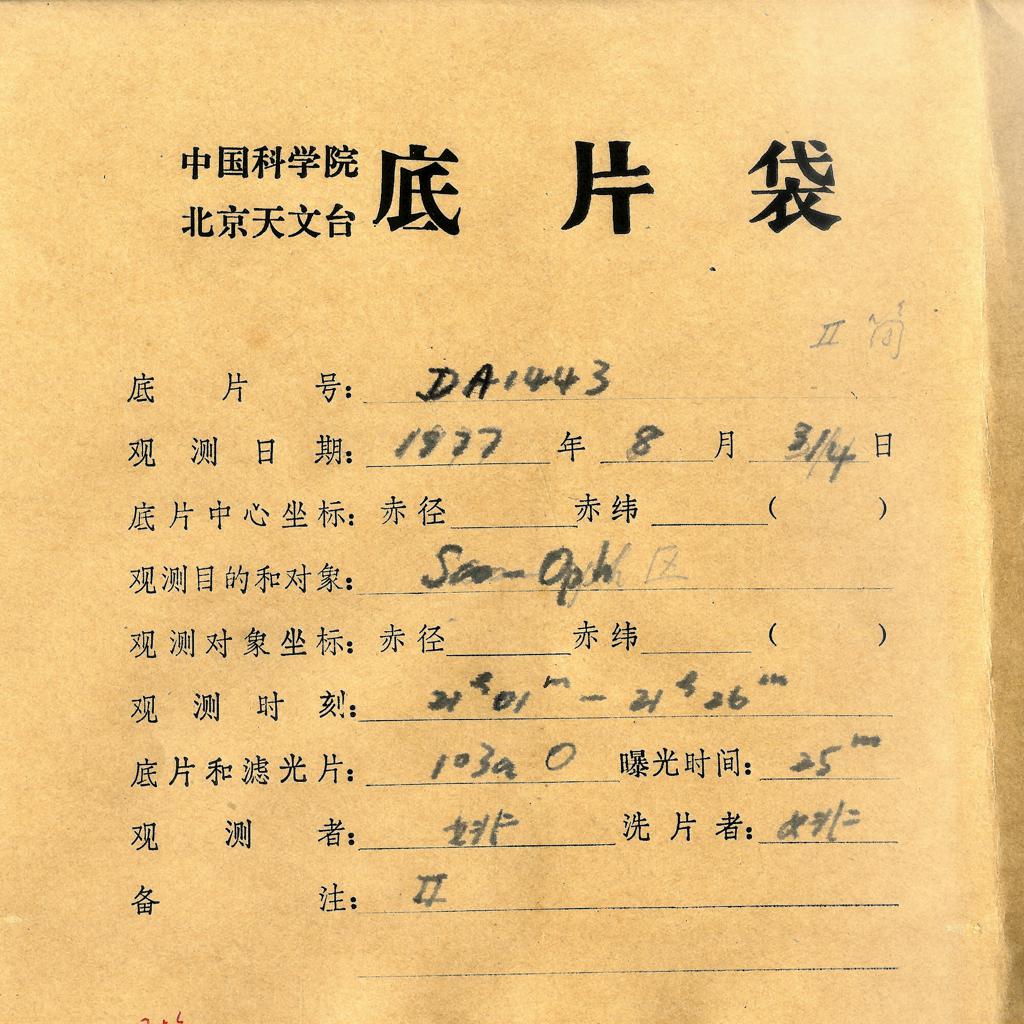 中国科学院
北京天文台
底片袋
II 筒
底片号: DA1443
观测日期: 1977 年 8 月 3/4 日
底片中心坐标: 赤径 赤纬 ( )
观测目的和对象: Sco-Oph 区
观测对象坐标: 赤径 赤纬 ( )
观测时刻: 21h01m - 21h26m
底片和滤光片: 103a O 曝光时间: 25m
观测者: 洗片者:
备注: II